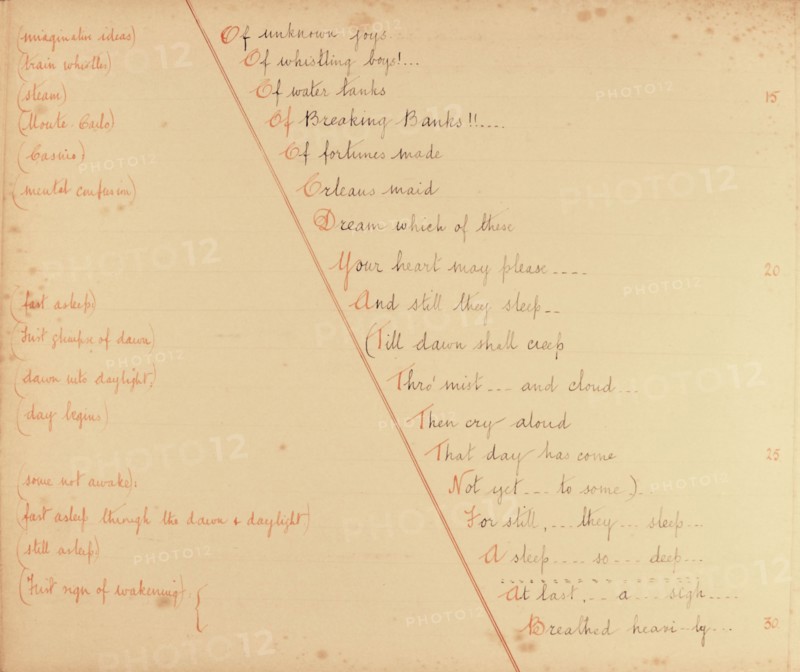 (imaginative ideas) Of unknown joys
(train whistles) Of whistling boys!...
(steam) Of water tanks
15
(Monte Carlo) Of Breaking Banks!!....
(Casino) Of fortunes made
(mental confusion) Orleans maid
Dream which of these
Your heart may please---- 20
(fast asleep) And still they sleep--
(First glimpse of dawn) (Till dawn shall creep
(dawn into daylight.) Thro' mist --- and cloud...
(day begins) Then cry aloud
That day has come 25
(some not awake): Not yet --- to some).
(fast asleep through the dawn & daylight) For still, ... they ... sleep...
(still asleep) A sleep .... so ... deep...
(First sign of wakening) { At last, -- a -- sigh ....
Breathed heavi-ly... 30
PHOTO12